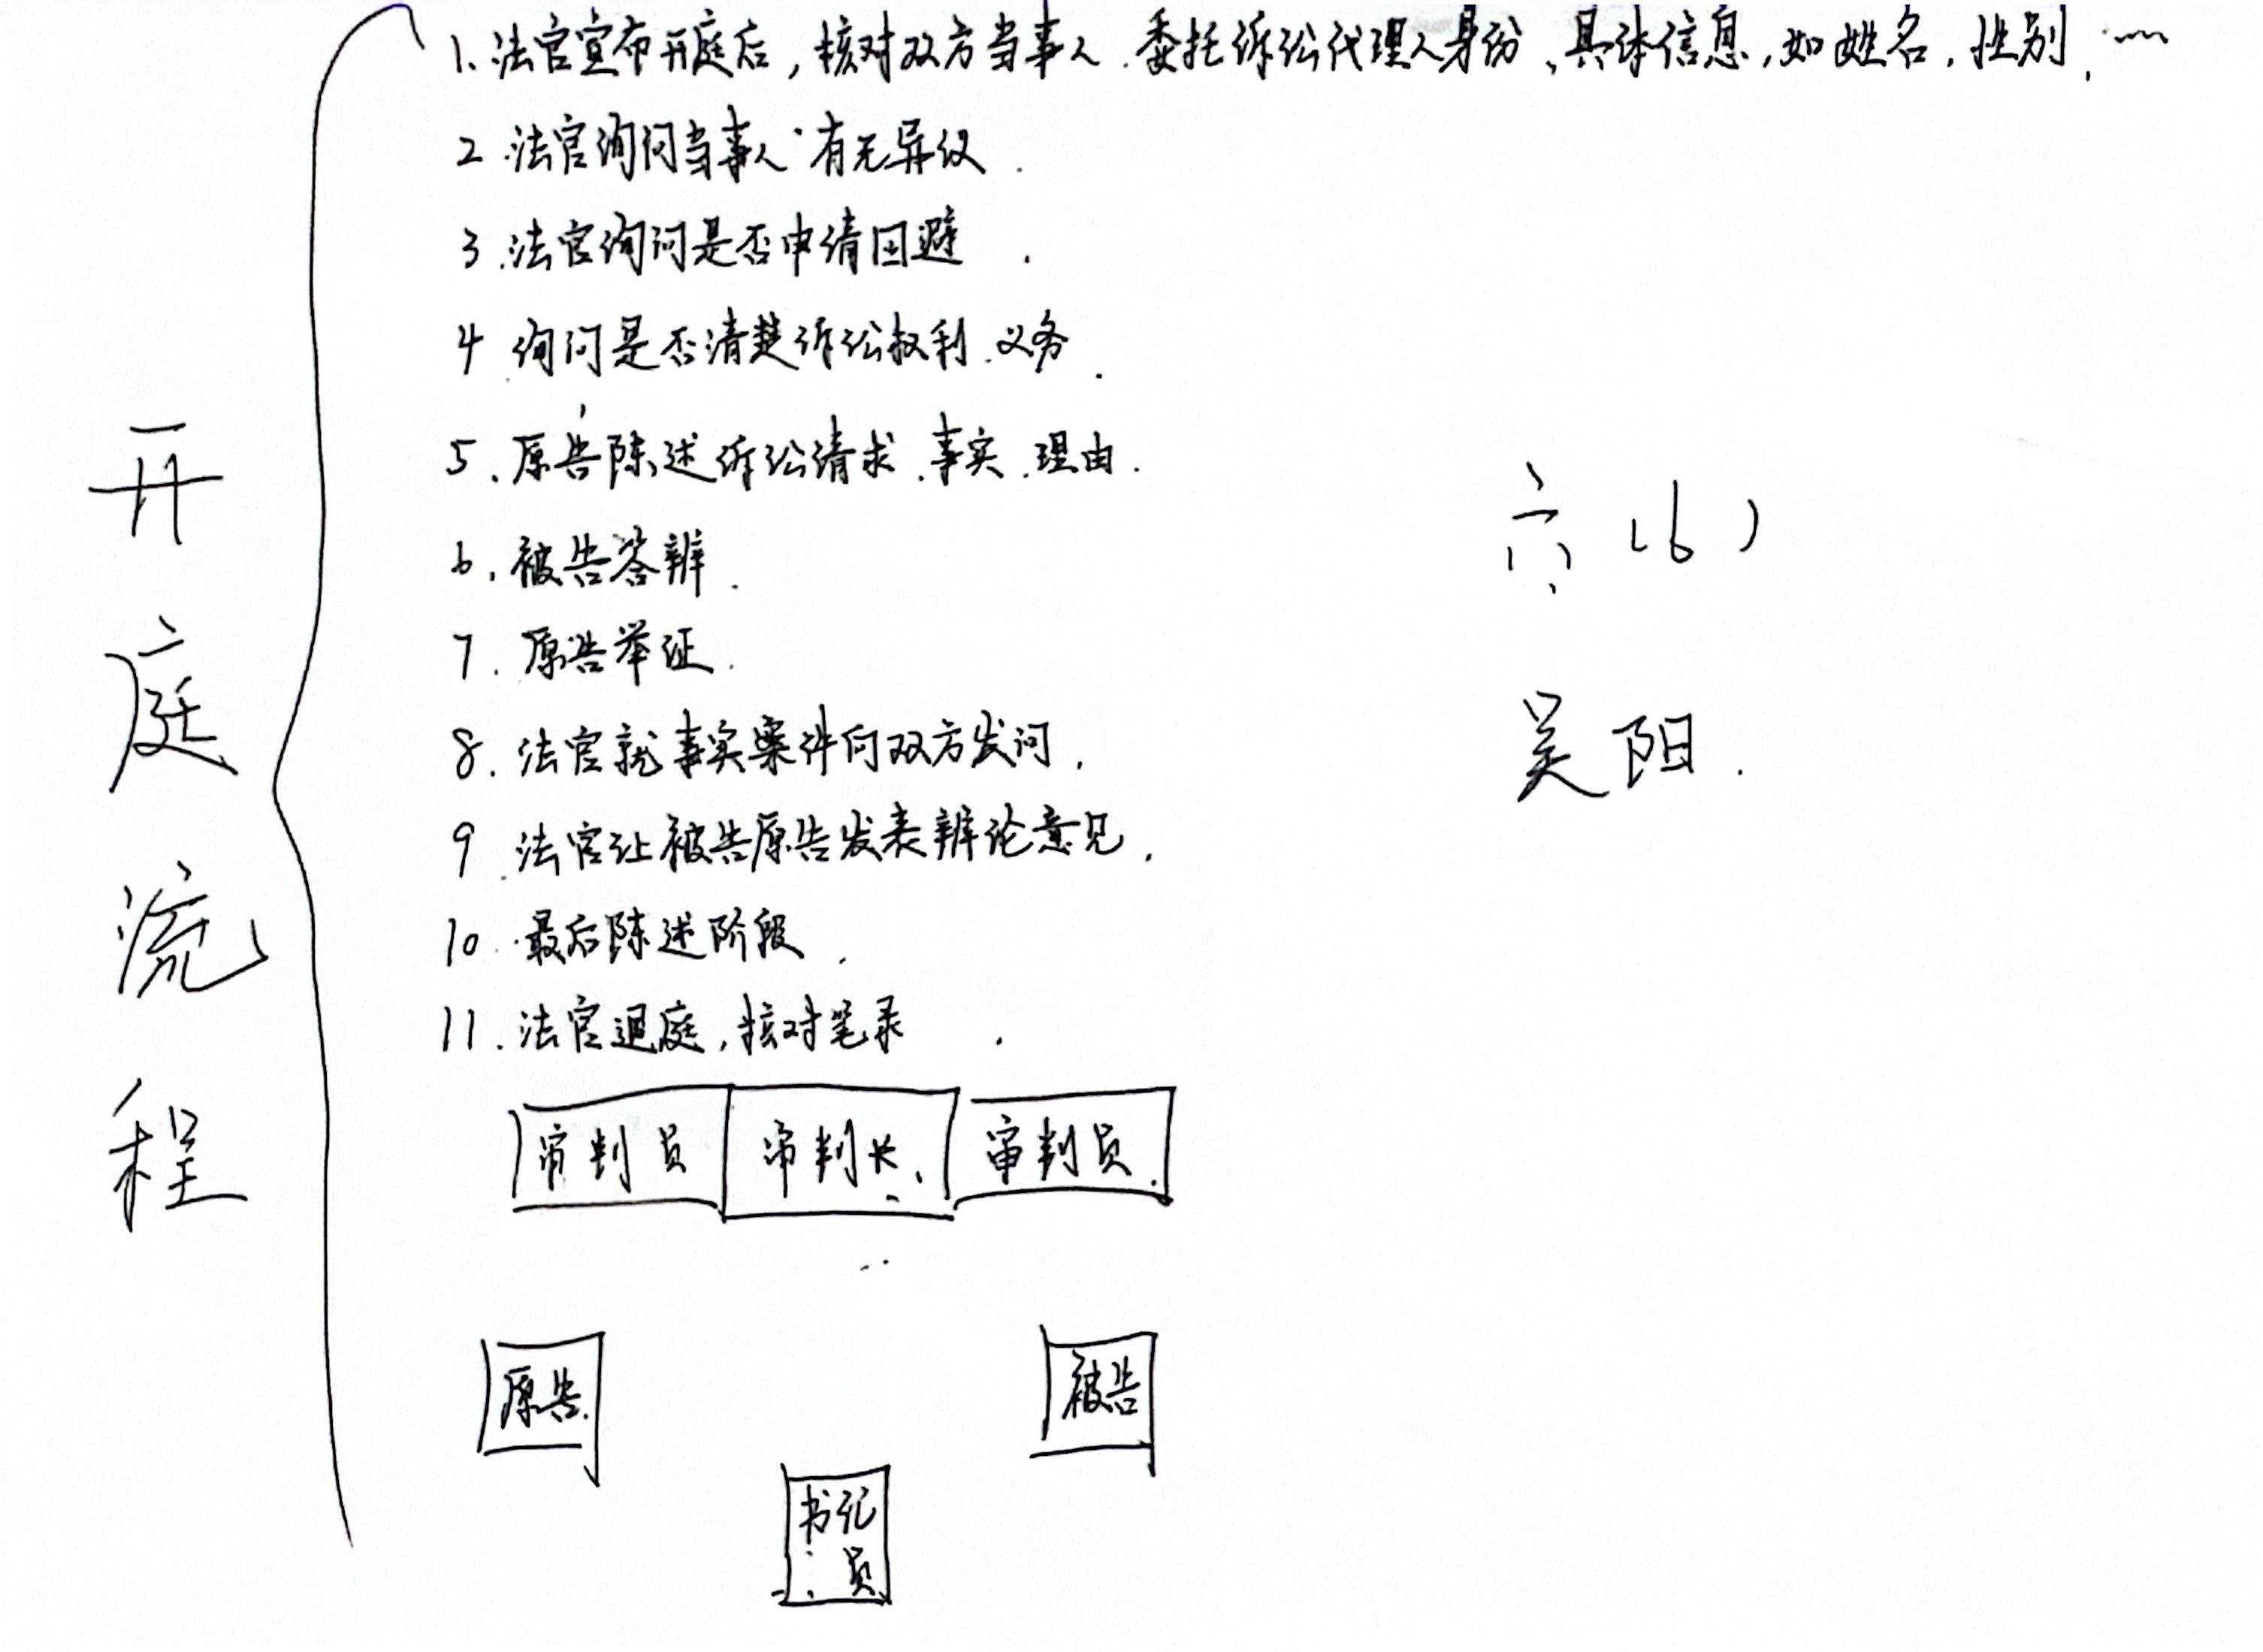 开庭流程
1. 法官宣布开庭后，核对双方当事人、委托诉讼代理人身份、具体信息，如姓名，性别，……
2. 法官询问当事人有无异议.
3. 法官询问是否申请回避.
4. 询问是否清楚诉讼权利、义务.
5. 原告陈述诉讼请求、事实、理由.
6. 被告答辨.
7. 原告举证.
8. 法官就事实案件向双方发问.
9. 法官让被告原告发表辨论意见.
10. 最后陈述阶段.
11. 法官退庭，核对笔录.
六(6)
吴阳.
审判员 审判长 审判员
原告 被告
书记
员